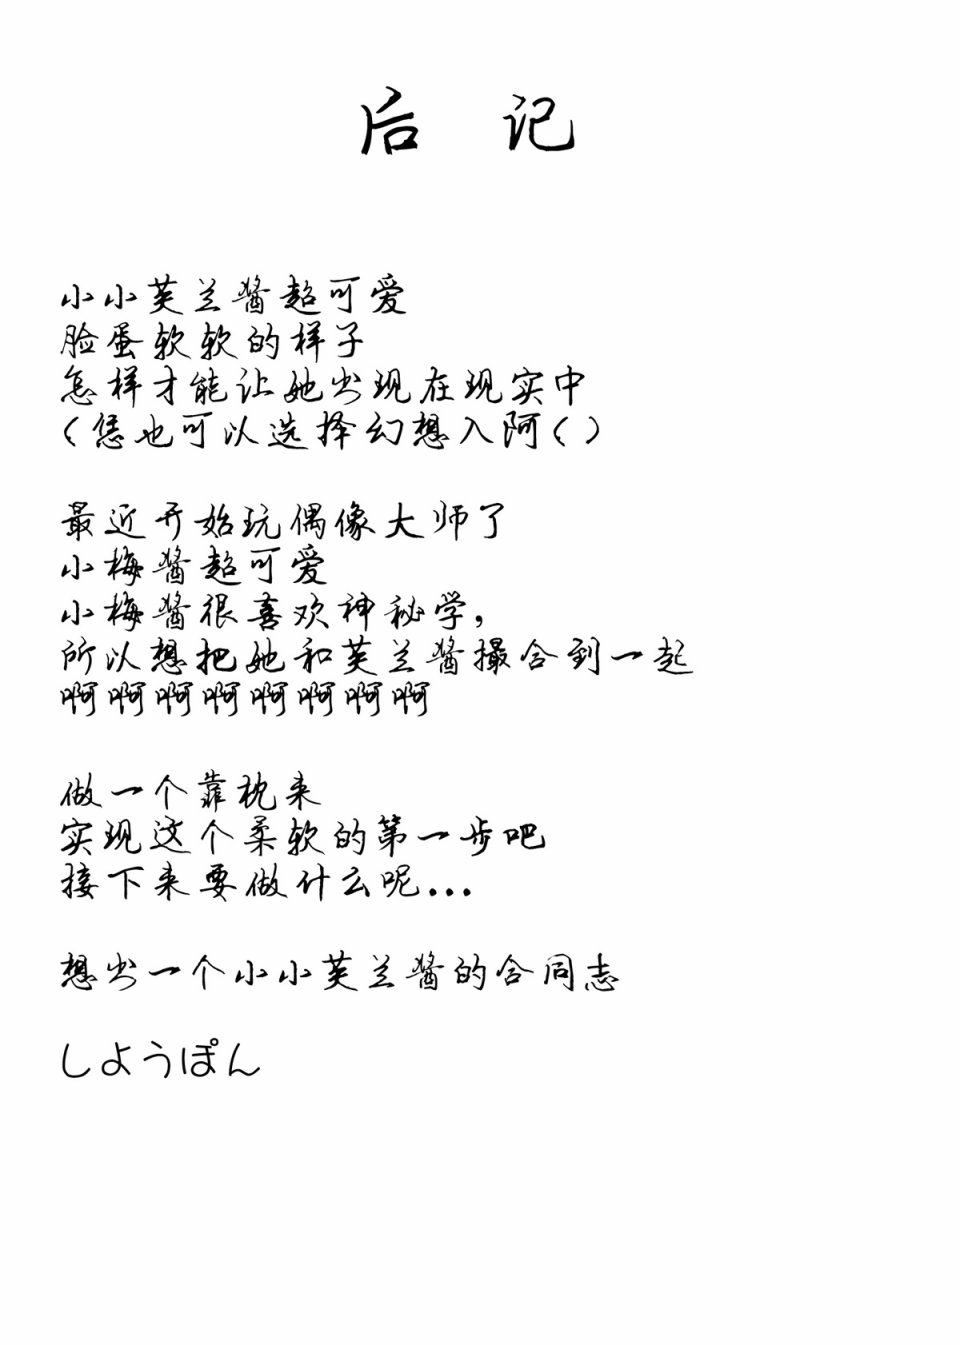 后 记
小小芙兰酱超可爱
脸蛋软软的样子
怎样才能让她出现在现实中
(恁也可以选择幻想入阿()
最近开始玩偶像大师了
小梅酱超可爱
小梅酱很喜欢神秘学，
所以想把她和芙兰酱撮合到一起
啊啊啊啊啊啊啊啊
做一个靠枕来
实现这个柔软的第一步吧
接下来要做什么呢...
想出一个小小芙兰酱的合同志
しようぽん